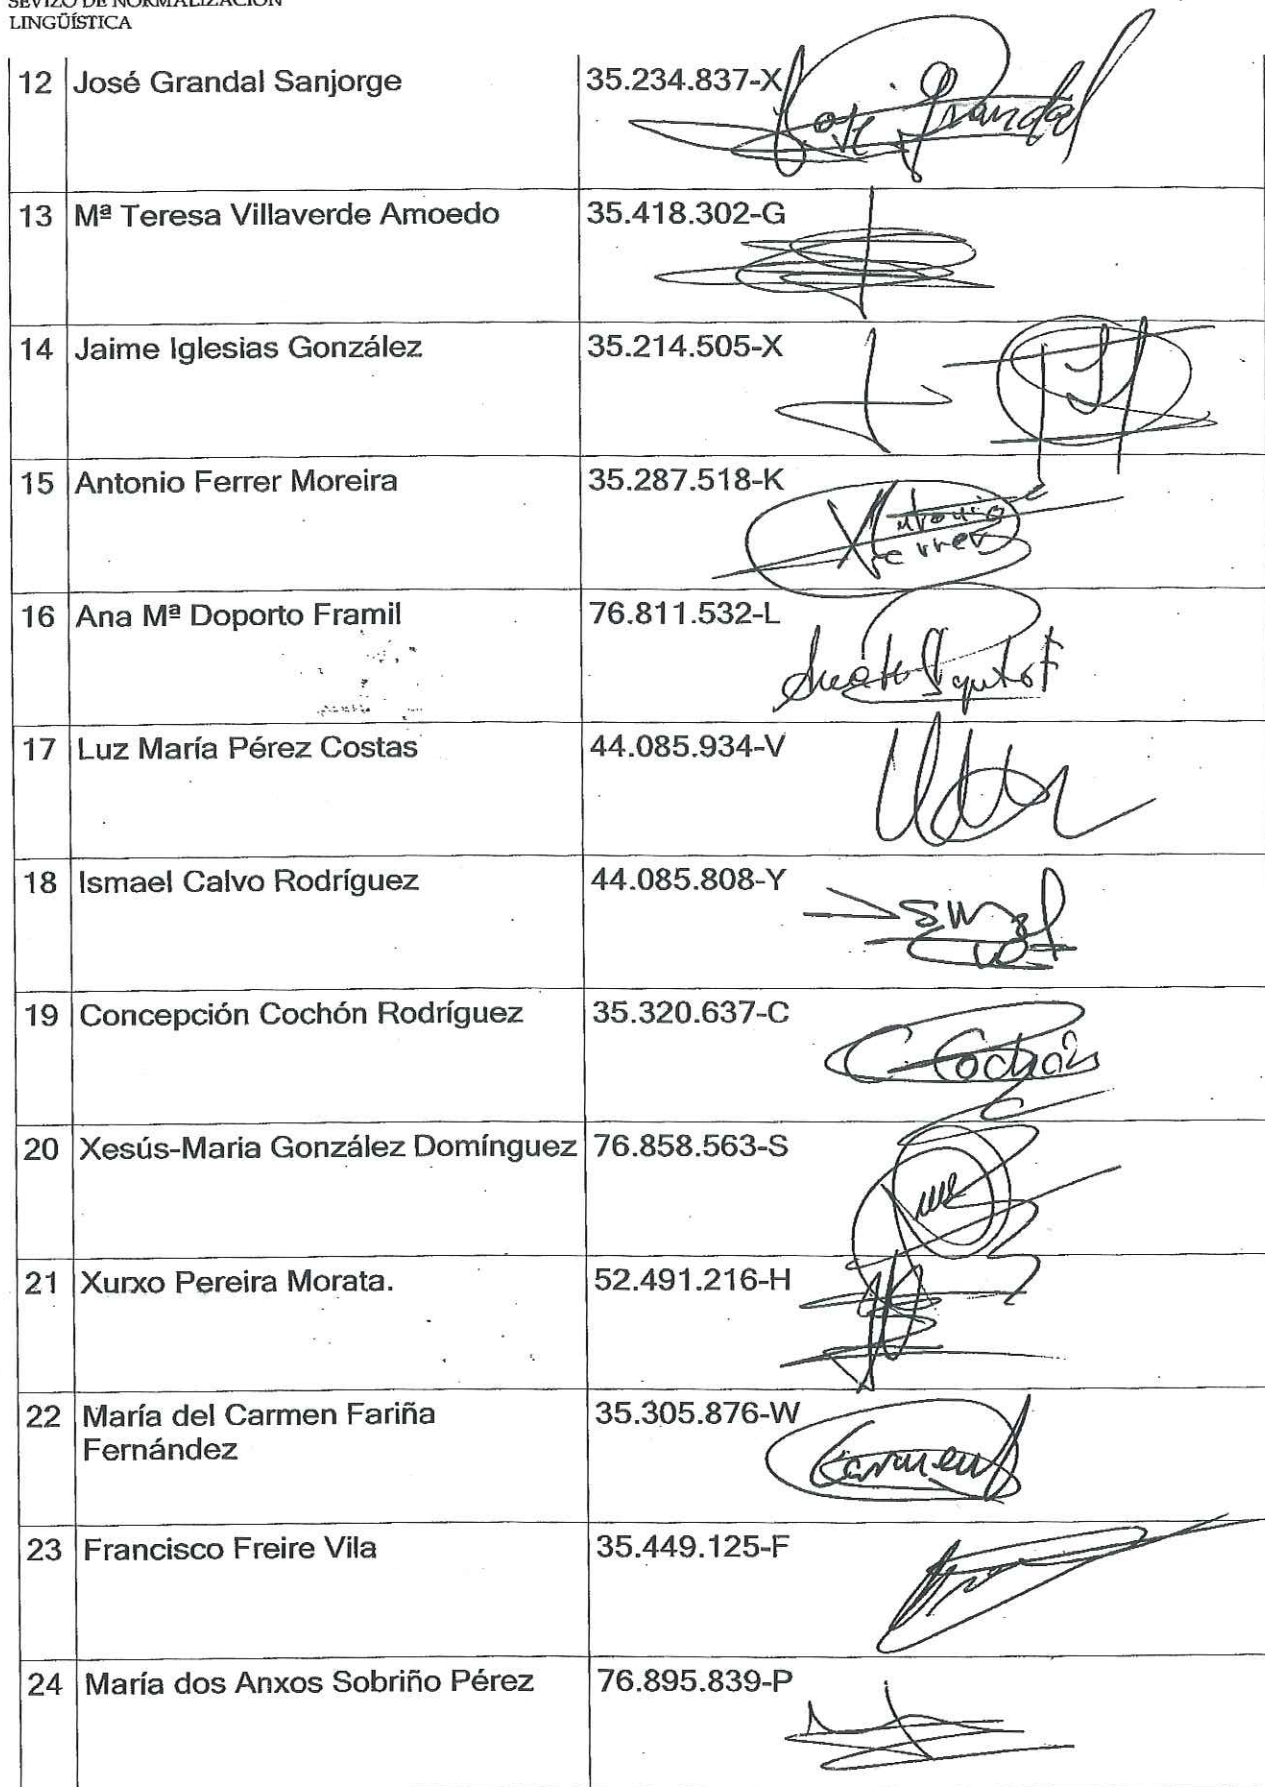 SEVIZO DE NORMALIZACIÓN
LINGÜÍSTICA
12 José Grandal Sanjorge 35.234.837-X
José Grandal
13 Mª Teresa Villaverde Amoedo 35.418.302-G
14 Jaime Iglesias González 35.214.505-X
15 Antonio Ferrer Moreira 35.287.518-K
Antonio
Ferrer
16 Ana Mª Doporto Framil 76.811.532-L
17 Luz María Pérez Costas 44.085.934-V
18 Ismael Calvo Rodríguez 44.085.808-Y
19 Concepción Cochón Rodríguez 35.320.637-C
C Cochón
20 Xesús-Maria González Domínguez 76.858.563-S
21 Xurxo Pereira Morata. 52.491.216-H
22 María del Carmen Fariña 35.305.876-W
Fernández
Carmen
23 Francisco Freire Vila 35.449.125-F
24 María dos Anxos Sobriño Pérez 76.895.839-P